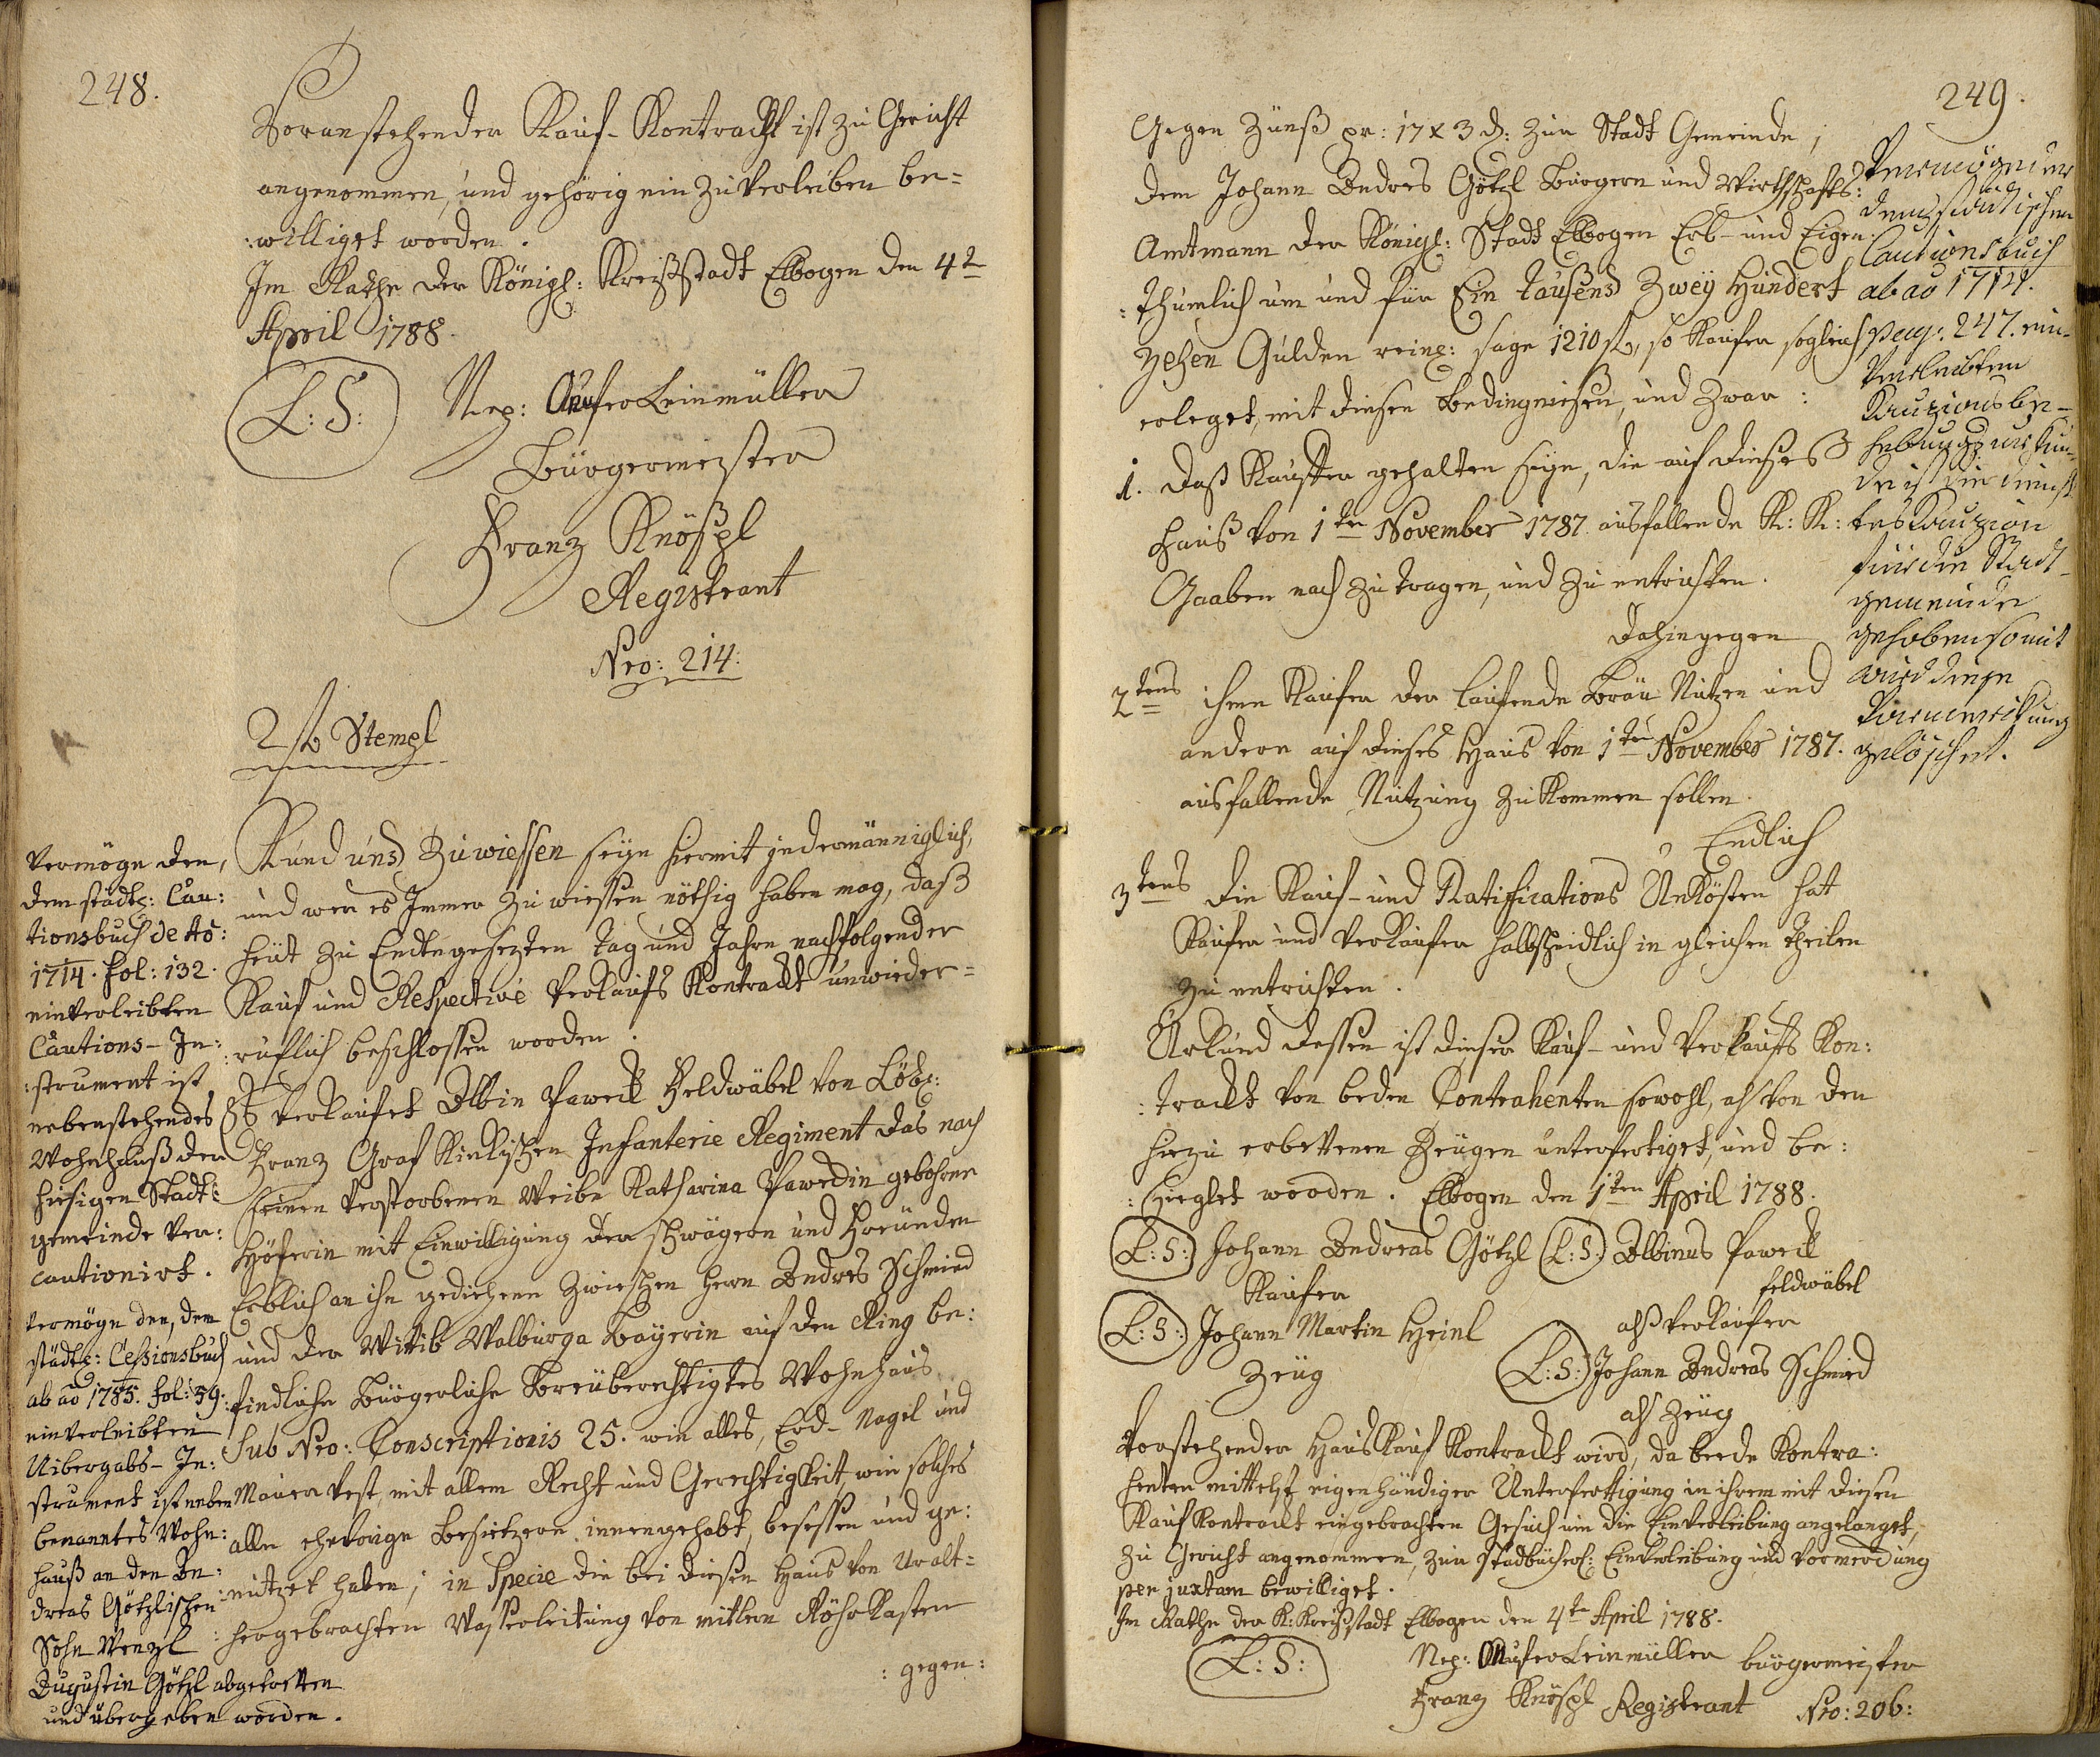 248.
Voranstehender Kauf-Kontrackt ist zu Gericht
angenommen, und gehörig ein zu verleiben be=
:williget worden.
Im Rathe der Königl: Kreißstadt Elbogen den 4t
April 1788.
L: S:
Nep: Leinmüller
Bürgermeister
Franz Knöspl
Registrant
Nro: 214:
2 f Stempl
Kund und Zuwiessen seye hiermit jedermänniglich,
und wer es Immer zu wiessen nöthig haben mag, daß
heüt zu Endtngesezten tag und Jahre nachfolgender
Kauf und Respective Verkaufs Kontrackt unwieder=
:rüflich beschlossen worden.
Es verkaufet Albin Paweck Feldwäbel von Löbl:
Franz Graf Kinkyschen Infanterie Regiment das nach
seinen verstorbenen Weibe Katharina Paweckin gebohrne
Höferin mit Einwilligung der schwägern und Freünden
Erblich an ihn gediehene zwischen Herrn Andres Schmied
und der Wittib Walburga Bayerin auf den Ring be:
findliche Bürgerliche Breüberechtigtes Wohnhaus
Sub Nro: Conscriptionis 25. wie alles, Erd- Nagel und
Mauer vest, mit allem Recht und Gerechtigkeit wie solches
alle ehevorige Besietzere innengehabt, besessen und ge:
:nützet haben; in Specie die bei diesen Haus von Uralt=
:hergebrachten Wasserleitung von mitlern Röhrkasten
: gegen:
Vermöge den,
dem städtl: Cau:
tionsbuch de Ao:
1714. fol: 132.
einverleibten
Cautions- In:
:strument ist
nebenstehendes
Wohnhauß der
hiesigen Stadt:
gemeinde ver:
cautionirt.
Vermöge den, dem
städtl: Cessionsbuch
ab ao 1785. fol: 59:
einverleibten
Uibergabs- In:
strument ist neben
benanntes Wohn:
hauß an den An:
dreas Götzlischen
Sohn Wenzl
Augustin Götzl abgetretten
und übergeben worden.
249.
Gegen Zünß pr: 17 x 3 d: zur Stadt Gemeinde;
dem Johann Andres Götzl Bürgern und Wirthschafts:
Amtmann der Königl: Stadt Elbogen Erb- und Eigen:
:thumlich um und für Ein tausend Zwey Hundert
zehen Gulden reinl: sage 1210 f, so Kaufer sogleich
erleget, mit diesen Bedingnissen, und zwar:
1. Daß Kauffer gehalten seye, die auf dieses
Hauß von 1ten November 1787 ausfallende K: K:
Gaaben nach zu tragen, und zu entrichten.
Dahingegen
2tens ihme Kaufer der laufende Bräu Nutzen und
andere auf dieses Haus von 1ten November 1787.
ausfallende Nutzung zu kommen sollen.
Endlich
3tens die Kauf- und Ratifications Unkösten hat
Kaufer und Verkaufer halbscheidlich in gleichen theilen
zu entrichten.
Urkund dessen ist dieser Kauf- und Verkaufs Kon:
:trackt von beden Contrahenten sowohl, als von den
hiezu erbettenen Zeügen unterfertiget, und be:
:sieglet worden. Elbogen den 1ten April 1788.
L: S: Johann Andreas Götzl L: S: Albinus Paweck
Kaufer
feldwäbel
alß Verkaufer
L: S: Johann Martin Heinl
Zeüg
L: S: Johann Andreas Schmied
als Zeüg
Vorstehender Hauskauf Kontrackt wird, da beede Kontra:
henten mittelst eigenhändiger Unterfertigung in ihrem mit diesen
Kauf Kontrackt eingebrachten Gesuch um die Einverleibung angelanget,
zu Gericht angenommen, zur stadbücherl: Einverleibung und Vormerckung
per juxtam bewilliget.
Im Rathe der K: Kreißstadt Elbogen den 4te April 1788.
L: S:
Nep: Leinmüller bürgermeister
Franz Knöspl Registrant Nro: 206:
Vermög der
dem städtischen
Cautionsbuch
ab ao 1714.
pag: 247. ein-
verleibten
Kauzionsbe-
hebungsurkun-
de ist die
Kauzion
für die Stadt-
gemeinde
gehoben somit
wird diese
Vormerkung
gelöschet.